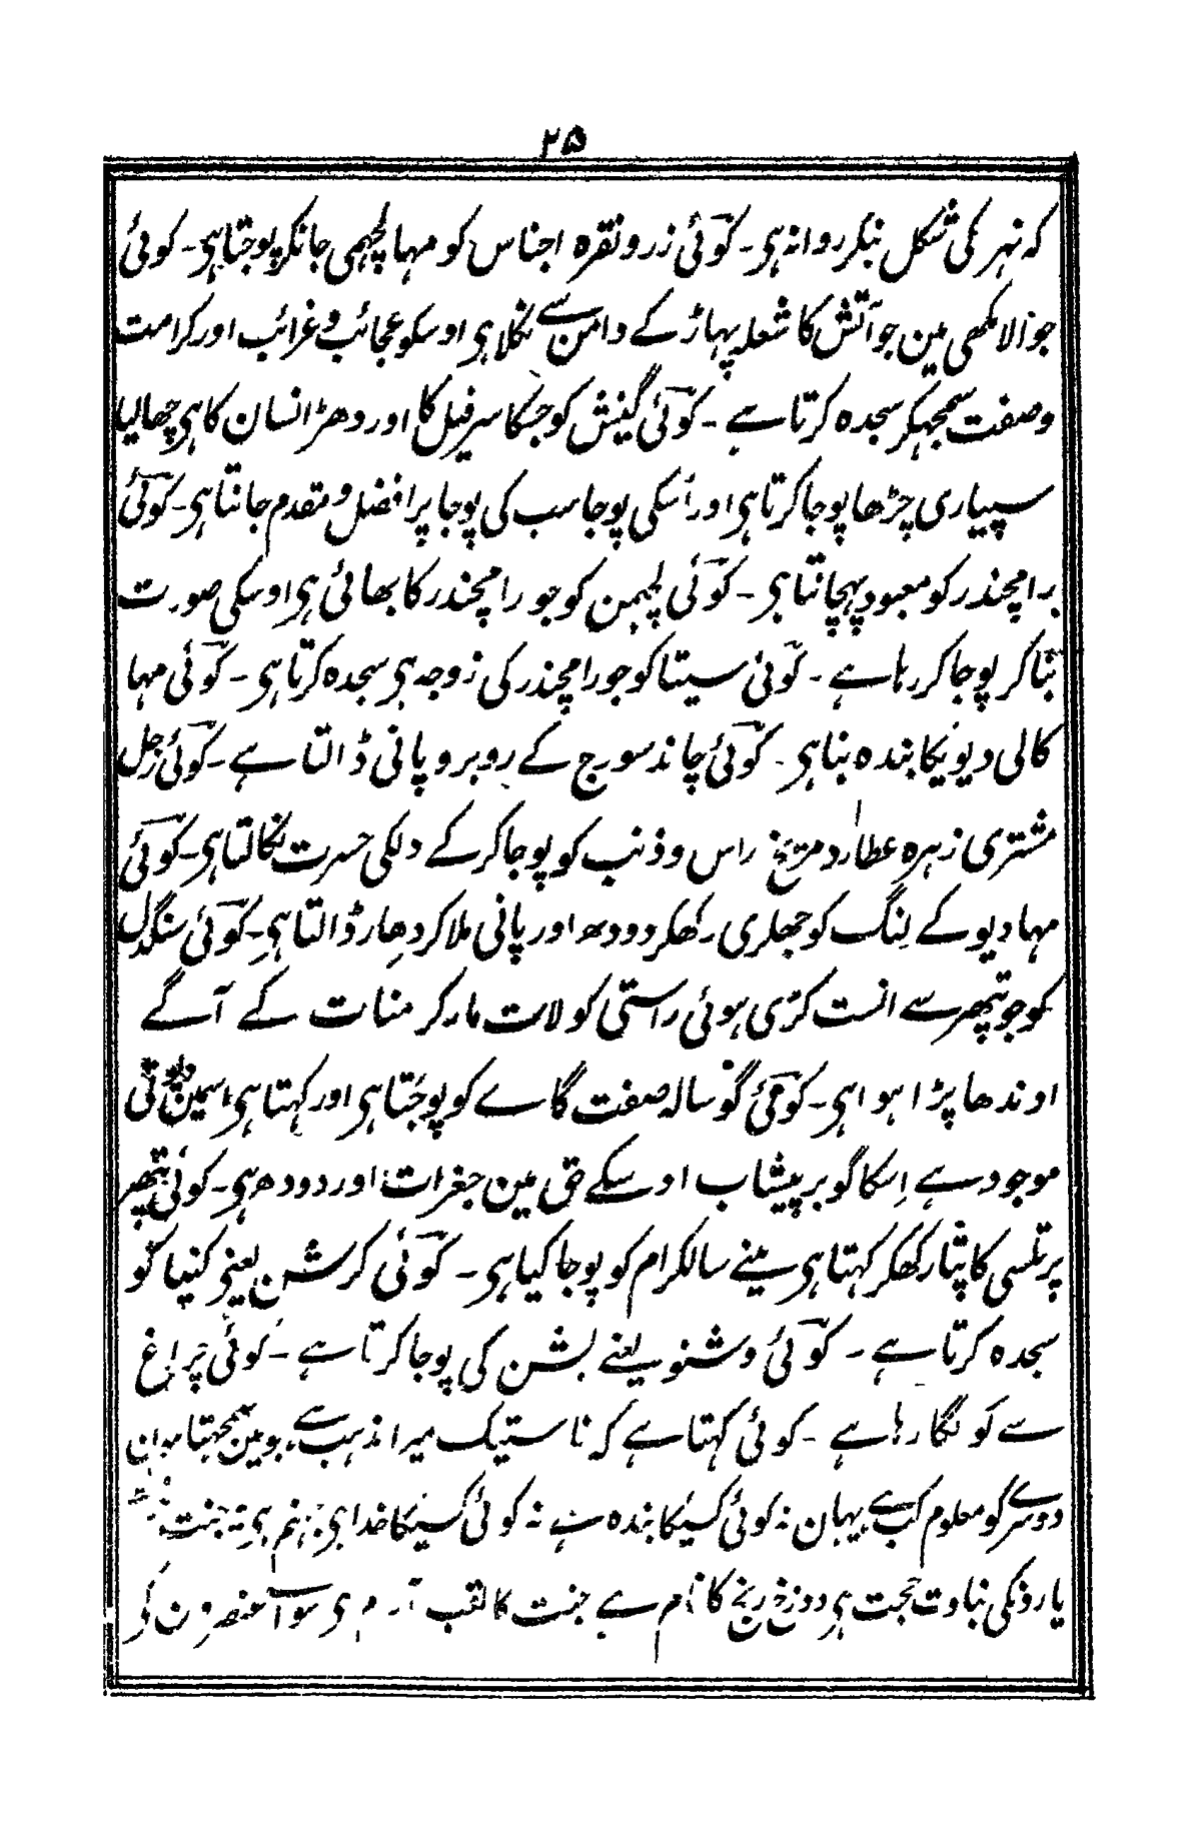 ۲۵
کہ نہر کی شکل بنکر روانہ ہی ۔ کوئی زر و نقرہ اجناس کو مہا لچھمی جانکر پوجتا ہی ۔ کوئی
جوالا مکھی مین جو آتش کا شعلہ پہاڑ کے دامن سے نکلا ہی اوسکو عجائب و غرائب اور کرامت
وصفت سمجھکر سجدہ کرتا ہے ۔ کوئی گنیش کو جسکا سر فیل کا اور دھڑ انسان کا ہی چھالیا
سپیاری چڑھا پوجا کرتا ہی اور اُسکی پوجا سب کی پوجا پر افضل و مقدم جانتا ہی ۔ کوئی
رامچندر کو معبود پہچانتا ہی ۔ کوئی لچھمن کو جو رامچندر کا بھائی ہی اوسکی صورت
بنا کر پوجا کر رہا ہے ۔ کوئی سیتا کو جو رامچندر کی زوجہ ہی سجدہ کرتا ہی ۔ کوئی مہا
کالی دیویکا بندہ بنا ہی ۔ کوئی چاند سورج کے روبرو پانی ڈالتا ہے ۔ کوئی زحل
مشتری زہرہ عطارد مریخ راس و ذنب کو پوجا کر کے دلکی حسرت نکالتا ہی ۔ کوئی
مہادیو کے لِنگ کو جھلری رکھکر دودھ اور پانی ملا کر دھار ڈالتا ہی ۔ کوئی سنگدل
کو جو پتھر سے انست کڑی ہوئی راستی کو لات مار کر منات کے آگے
اوندھا پڑا ہوا ہی ۔ کوئی گوسالہ صفت گاے کو پوجتا ہی اور کہتا ہی اسمین
موجود ہے اِسکا گوبر پیشاب اوسکے حق مین جغرات اور دودھ ہی ۔ کوئی پتھر
پر تلسی کا پتا رکھکر کہتا ہی مینے سالگرام کو پوجا کیا ہی ۔ کوئی کرشن یعنی کنہیا کو
سجدہ کرتا ہے ۔ کوئی وشنو یعنے بشن کی پوجا کرتا ہے ۔ کوئی چراغ
سے لو لگا رہا ہے ۔ کوئی کہتا ہے کہ ناستیک میرا مذہب ہے، جو مین سمجھتا ہون
دوسرے کو معلوم کب ہے یہان نہ کوئی کسیکا بندہ ہے نہ کوئی کسیکا خدا ہی نہ جہنم ہی نہ جنت
یارونکی بناوٹ حجت ہی دوزخ رنج کا نام ہے جنت کا لقب آرام ہی سواے عنصرون کی